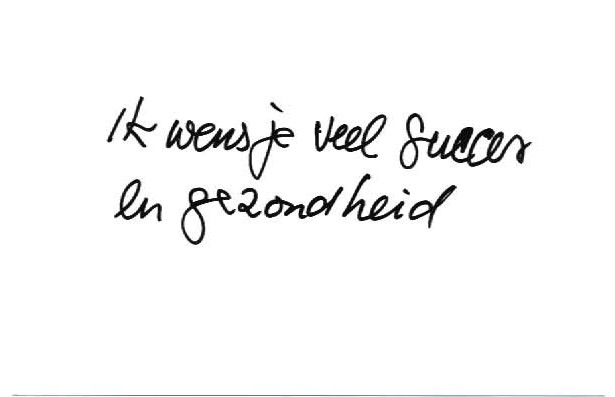 Ik wens je veel succes
en gezondheid